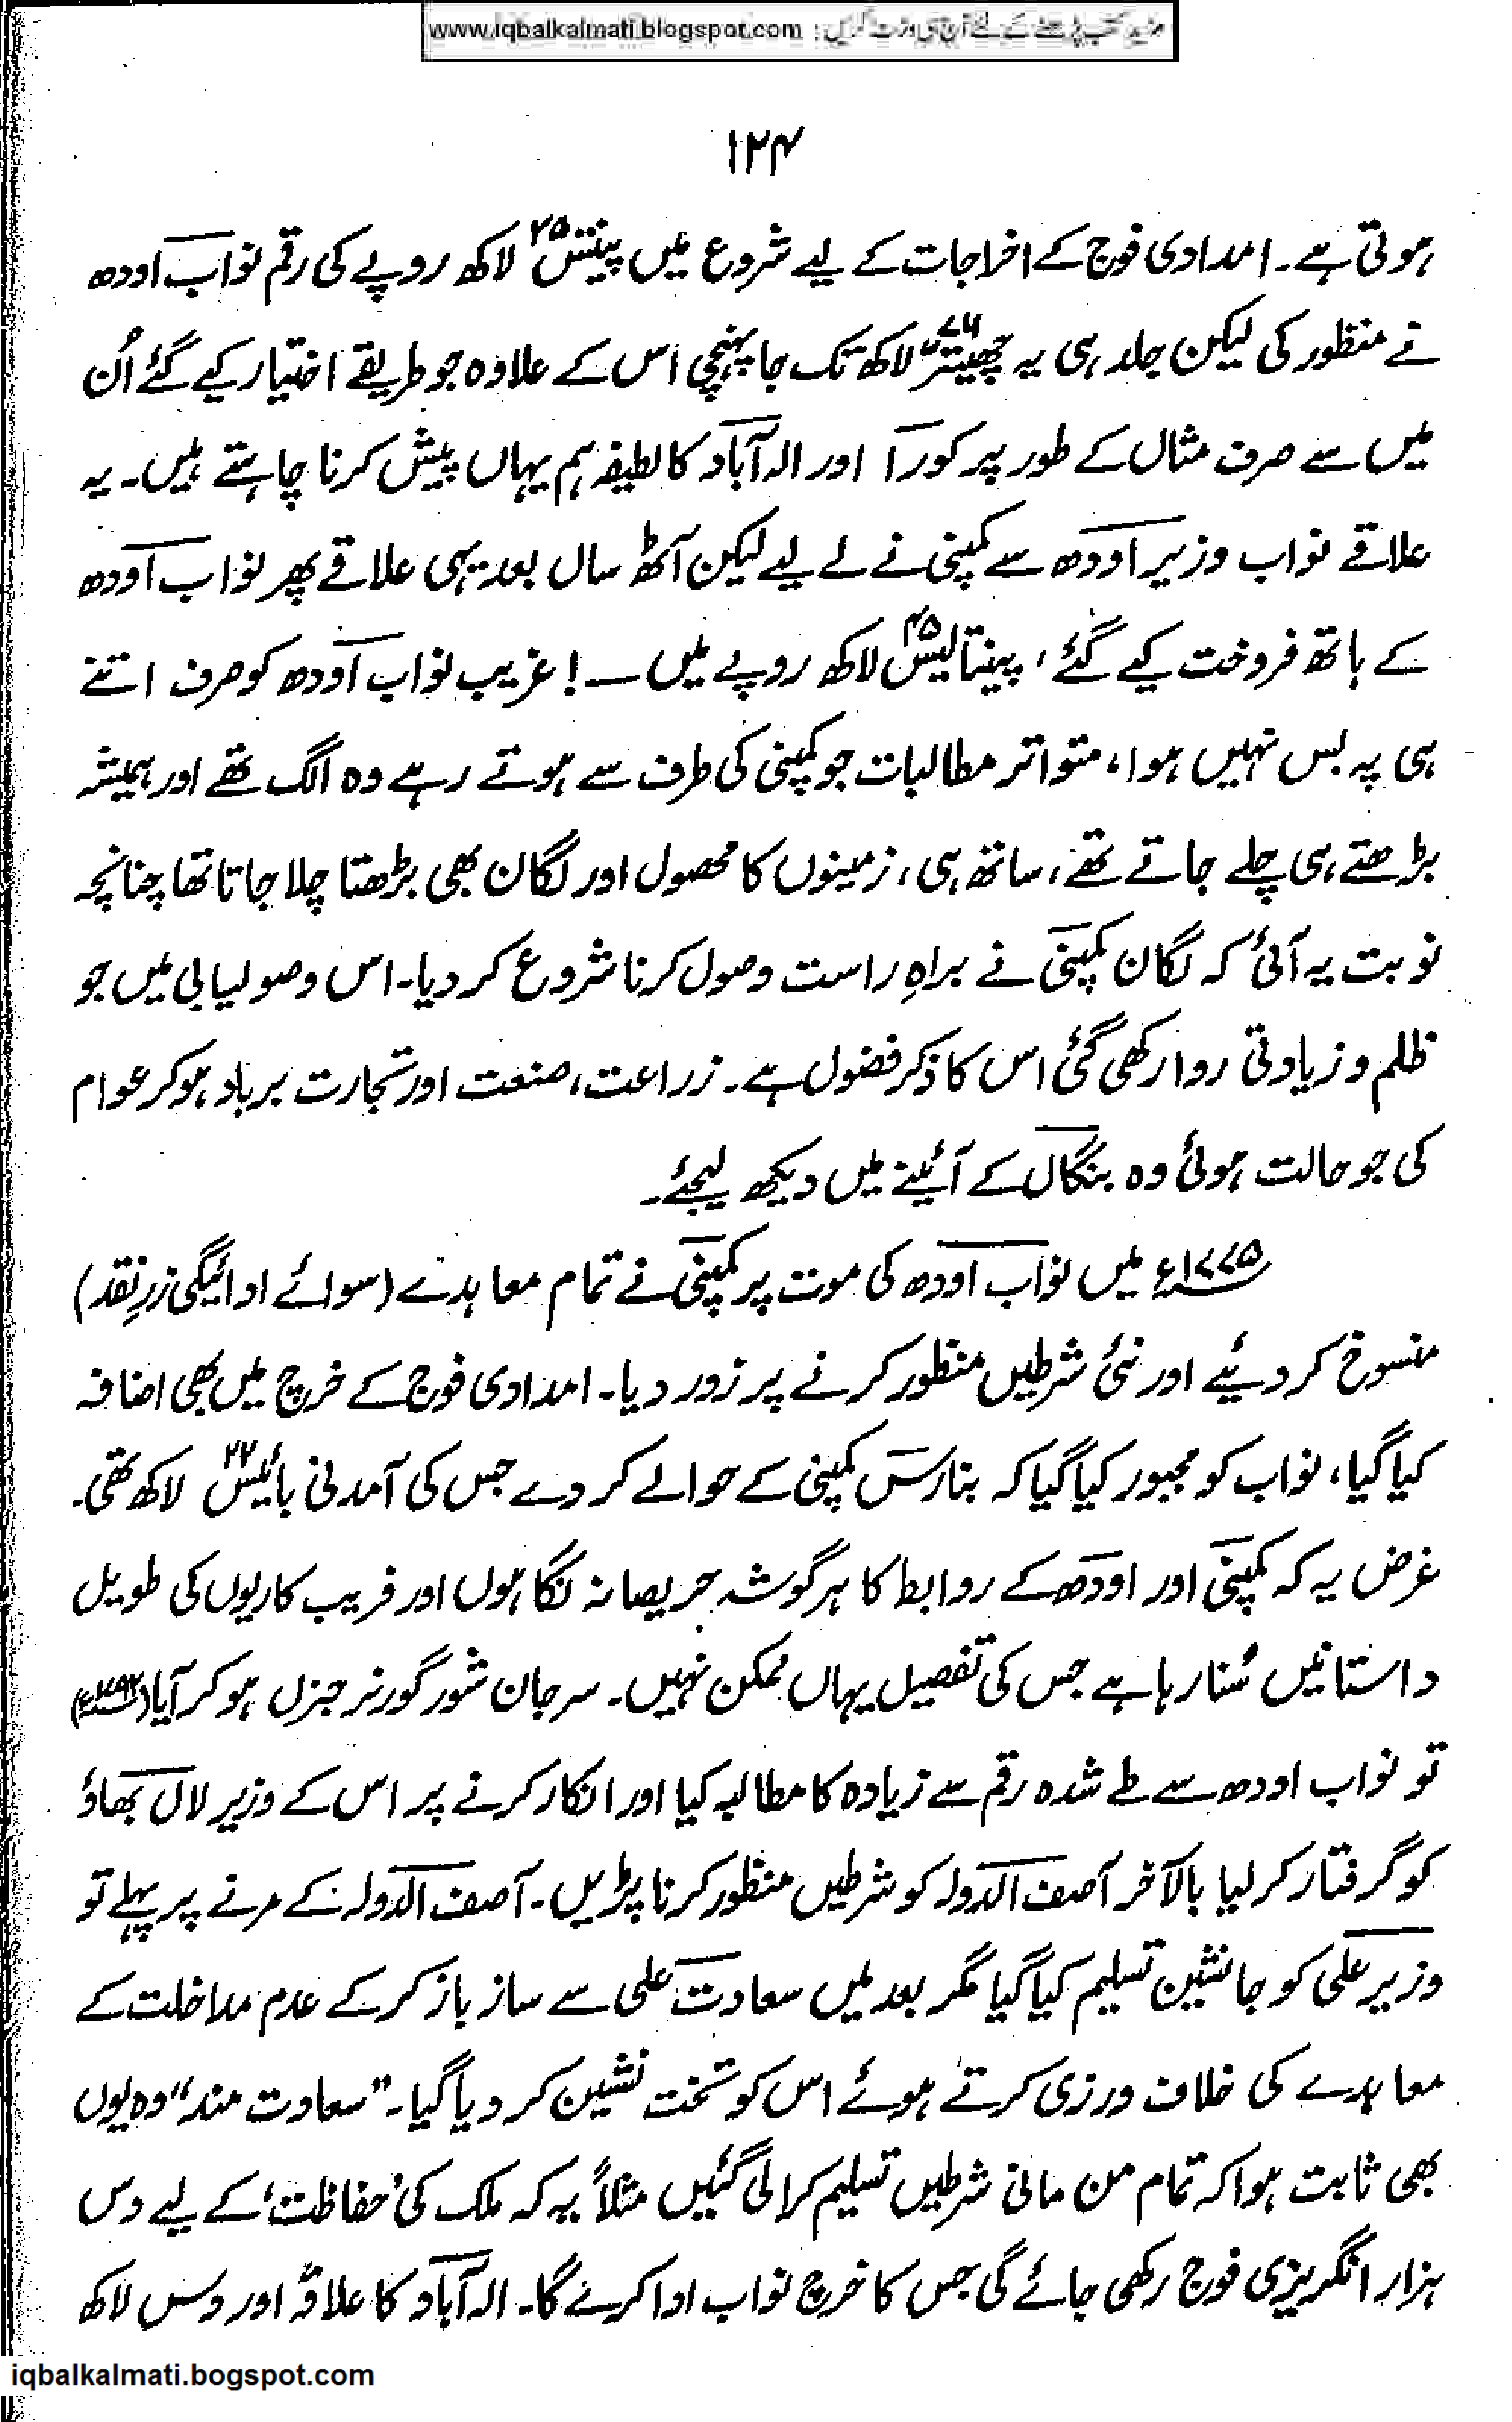 مزید کتب پڑھنے کے لئے آج ہی وزٹ کریں : www.iqbalkalmati.blogspot.com
۱۲۴
ہوتی ہے۔ امدادی فوج کے اخراجات کے لیے شروع میں پینتیس ۲۵ لاکھ روپے کی رقم نواب اودھ
نے منظور کی لیکن جلد ہی یہ چھیتر ۷۶ لاکھ تک جا پہنچی اس کے علاوہ جو طریقے اختیار کیے گئے اُن
میں سے صرف مثال کے طور پر کورآ اور الہ آباد کا لطیفہ ہم یہاں پیش کرنا چاہتے ہیں۔ یہ
علاقے نواب وزیر اودھ سے کمپنی نے لے لیے لیکن آٹھ سال بعد یہی علاقے پھر نواب اودھ
کے ہاتھ فروخت کیے گئے، پینتالیس ۴۵ لاکھ روپے میں ــ! غریب نواب اودھ کو صرف اتنے
ہی پہ بس نہیں ہوا، متواتر مطالبات جو کمپنی کی طرف سے ہوتے رہے وہ الگ تھے اور ہمیشہ
بڑھتے ہی چلے جاتے تھے، ساتھ ہی، زمینوں کا محصول اور لگان بھی بڑھتا چلا جاتا تھا چنانچہ
نوبت یہ آئی کہ لگان کمپنی نے براہِ راست وصول کرنا شروع کر دیا۔ اس وصولیابی میں جو
ظلم و زیادتی روا رکھی گئی اس کا ذکر فضول ہے۔ زراعت، صنعت اور تجارت برباد ہو کر عوام
کی جو حالت ہوئی وہ بنگال کے آئینے میں دیکھ لیجئے۔
۱۷۷۵ء میں نواب اودھ کی موت پر کمپنی نے تمام معاہدے (سوائے ادائیگی زرِ نقد)
منسوخ کر دیئے اور نئی شرطیں منظور کرنے پر زور دیا۔ امدادی فوج کے خرچ میں بھی اضافہ
کیا گیا، نواب کو مجبور کیا گیا کہ بنارس کمپنی کے حوالے کر دے جس کی آمدنی بائیس ۲۲ لاکھ تھی۔
غرض یہ کہ کمپنی اور اودھ کے روابط کا ہر گوشہ حریصانہ نگاہوں اور فریب کاریوں کی طویل
داستانیں سُنا رہا ہے جس کی تفصیل یہاں ممکن نہیں۔ سر جان شور گورنر جنرل ہو کر آیا
تو نواب اودھ سے طے شدہ رقم سے زیادہ کا مطالبہ کیا اور انکار کرنے پر اس کے وزیر لال بھاؤ
کو گرفتار کر لیا بالآخر آصف الدولہ کو شرطیں منظور کرنا پڑیں۔ آصف الدولہ کے مرنے پر پہلے تو
وزیر علی کو جانشین تسلیم کیا گیا مگر بعد میں سعادت علی سے ساز باز کر کے عدم مداخلت کے
معاہدے کی خلاف ورزی کرتے ہوئے اس کو تخت نشین کر دیا گیا۔ "سعادت مند" وہ یوں
بھی ثابت ہوا کہ تمام من مانی شرطیں تسلیم کرالی گئیں مثلاً یہ کہ ملک کی 'حفاظت' کے لیے دس
ہزار انگریزی فوج رکھی جائے گی جس کا خرچ نواب ادا کرے گا۔ الہ آباد کا علاقہ اور دس لاکھ
iqbalkalmati.bogspot.com